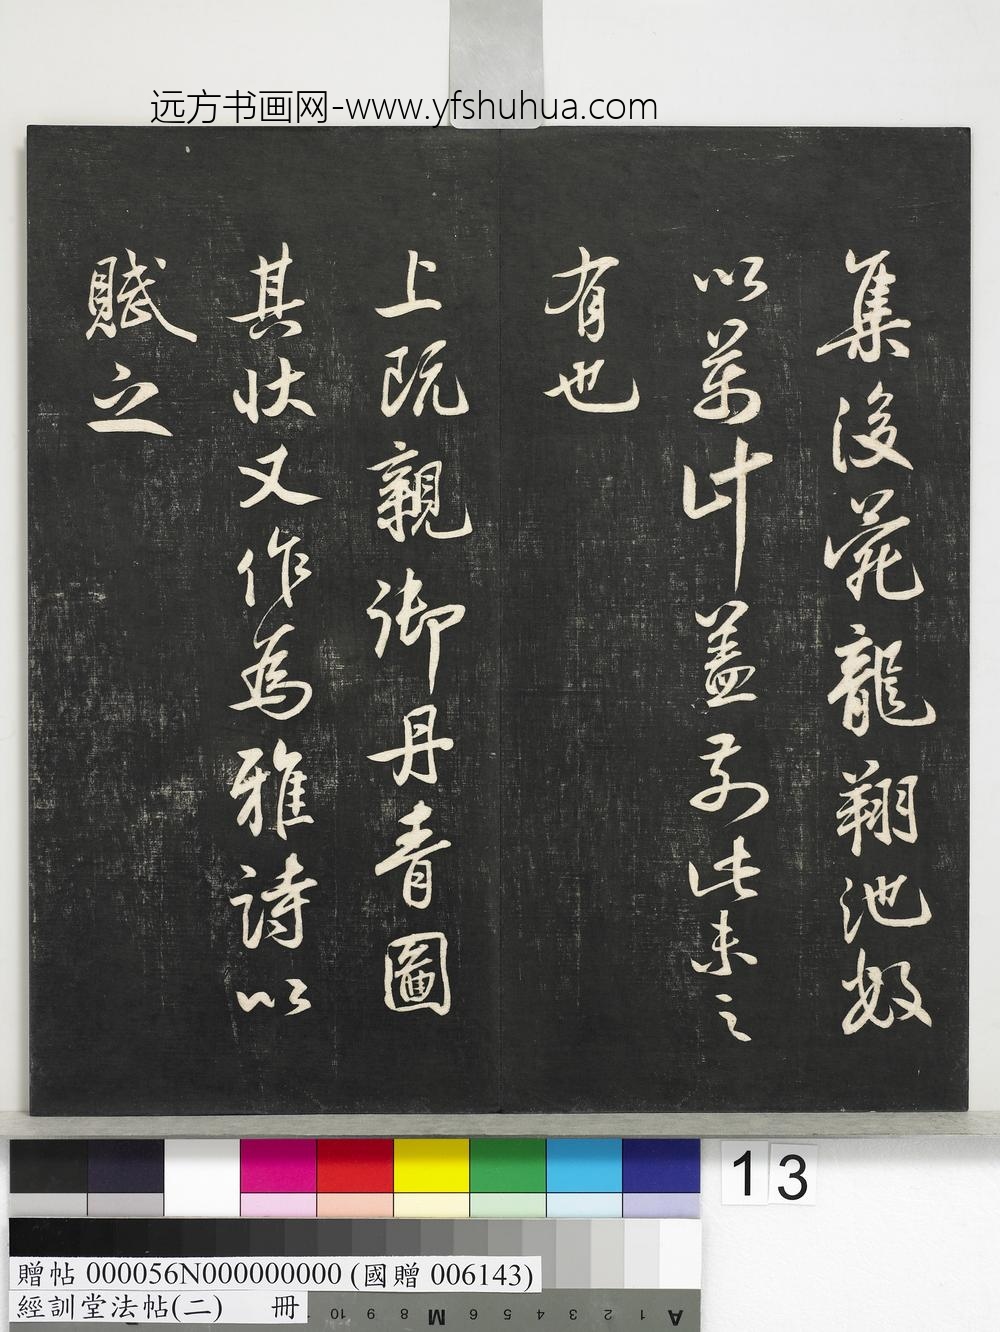 远方书画网-www.yfshuhua.com
集後苑龍翔池奴
以萬計蓋前此未之
有也
上既親御丹青圖
其狀又作為雅詩以
賦之
13
贈帖 000056N000000000 (國贈 006143)
經訓堂法帖(二) 冊
10 9 8 M 6 5 4 3 2 1 A